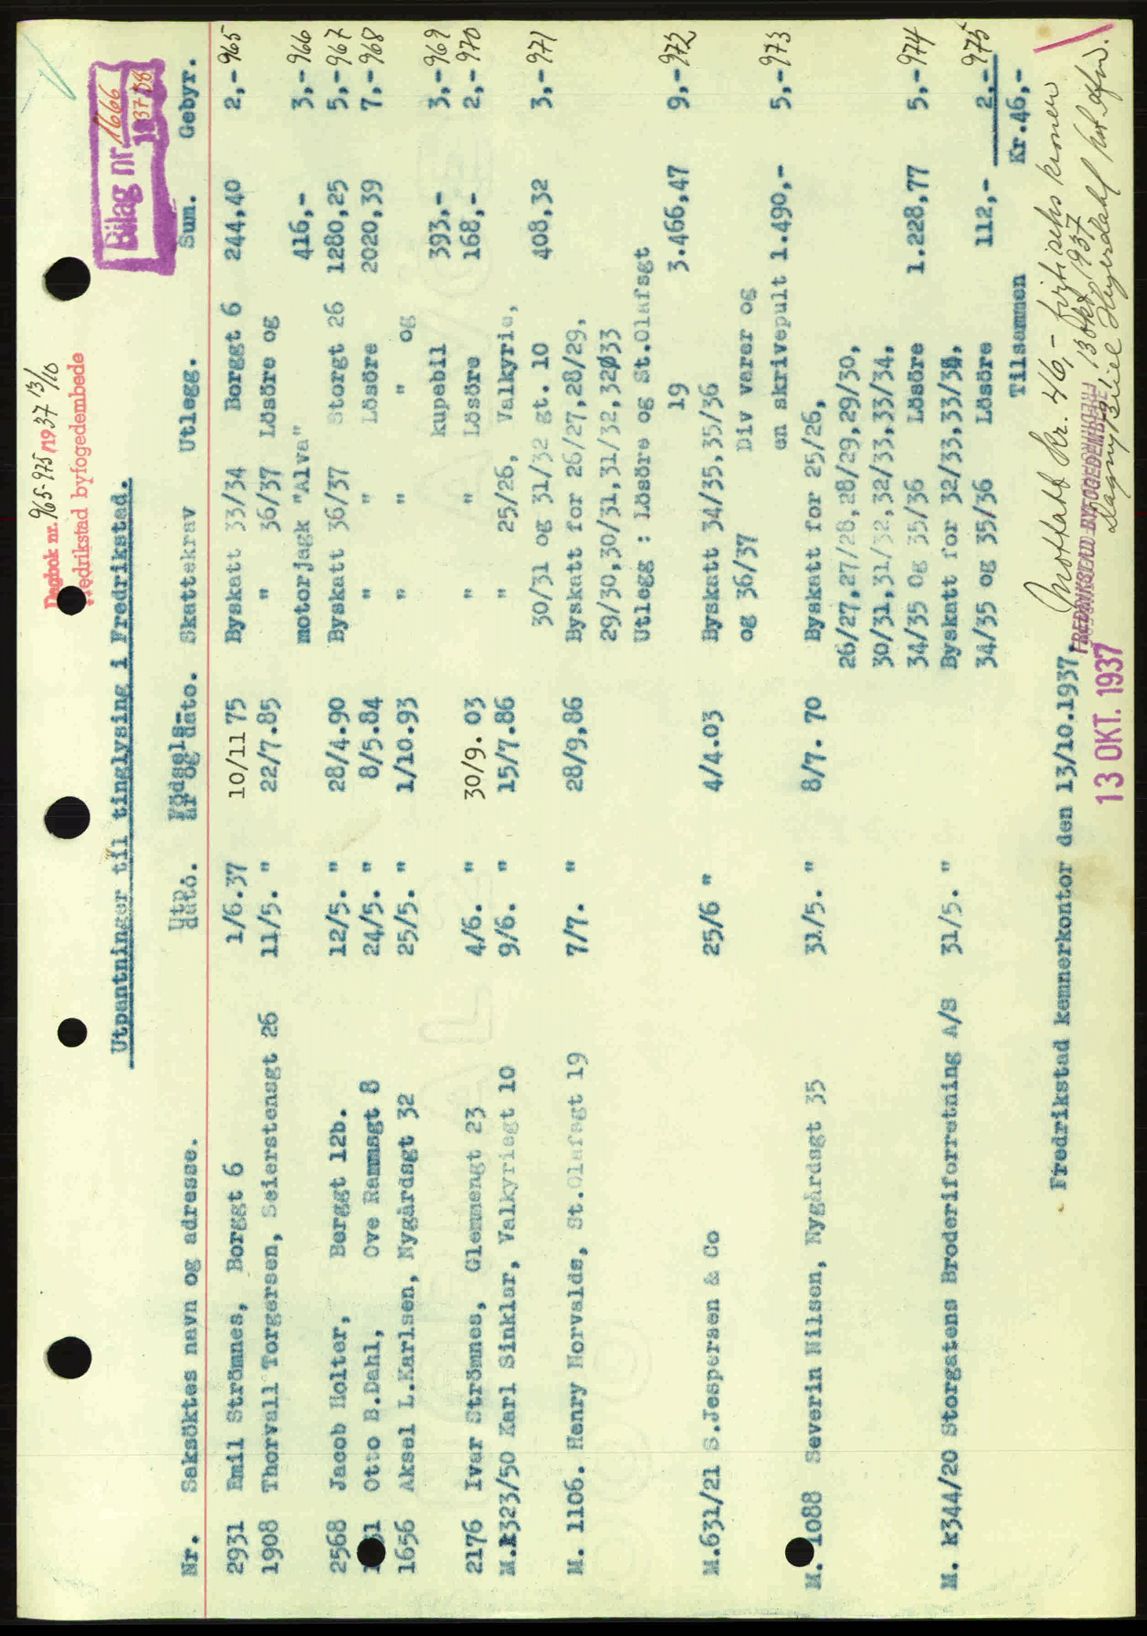 Dagbok nr. 965-975/1937 13/10
Fredrikstad byfogedembede
Bilag nr. 1666
1937 DB
Utpantninger til tinglysing i Fredrikstad.
Nr. Saksöktes navn og adresse. Utp dato. Födsels- år og dato. Skattekrav Utlegg. Sum. Gebyr.
2931 Emil Strömnes, Borggt 6 1/6.37 10/11 75 Byskatt 33/34 Borggt 6 244,40 2,- 965
1908 Thorvall Torgersen, Seierstensgt 26 11/5. " 22/7.85 " 36/37 Lösöre og
motorjagk "Alva" 416,- 3,- 966
2568 Jacob Holter, Berggt 12b. 12/5. " 28/4.90 Byskatt 36/37 Storgt 26 1280,25 5,- 967
Otto B.Dahl, Ove Rammsgt 8 24/5. " 8/5.84 " " Lösöre 2020,39 7,- 968
1656 Aksel L.Karlsen, Nygårdsgt 32 25/5. " 1/10.93 " " " og
kupebil 393,- 3,- 969
2176 Ivar Strömnes, Glemmengt 23 4/6. " 30/9. 03 " " Lösöre 168,- 2,- 970
M.k323/50 Karl Sinklar, Valkyriegt 10 9/6. " 15/7.86 " 25/26, Valkyrie,
30/31 og 31/32 gt. 10 408,32 3,- 971
M. 1106. Henry Norvalds, St.Olafsgt 19 7/7. " 28/9,86 Byskatt for 26/27,28/29,
29/30,30/31,31/32,32/33
Utlegg : Lösöre og St.Olafsgt
19 3.466,47 9,- 972
M.631/21 S.Jespersen & Co 25/6 " 4/4.03 Byskatt 34/35,35/36
og 36/37 Div varer og
en skrivepult 1.490,- 5,- 973
M. 1088 Severin Nilsen, Nygårdsgt 35 31/5. " 8/7. 70 Byskatt for 25/26,
26/27,27/28,28/29,29/30,
30/31,31/32,32/33,33/34,
34/35 Og 35/36 Lösöre 1.228,77 5,- 974
M. k344/20 Storgatens Broderiforretning A/S 31/5. " Byskatt for 32/33,33/34,
34/35 og 35/36 Lösöre 112,- 2,- 975
Tilsammen Kr.46,-
Mottatt kr. 46,- førtiseks kroner
Fredrikstad kemnerkontor den 13/10.1937.
FREDRIKSTAD BYFOGEDEMBEDE 13 okt. 1937
13 OKT. 1937